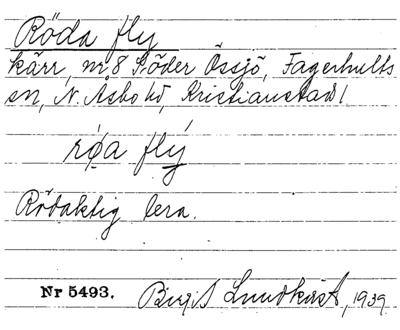 Röda fly
kärr, nr 8 Söder Össjö, Fagerhults
sn, N. Åsbo hd, Kristianstad l
røa flý
Rödaktig lera.
Nr 5493. Birgit Lundkvist, 1939.